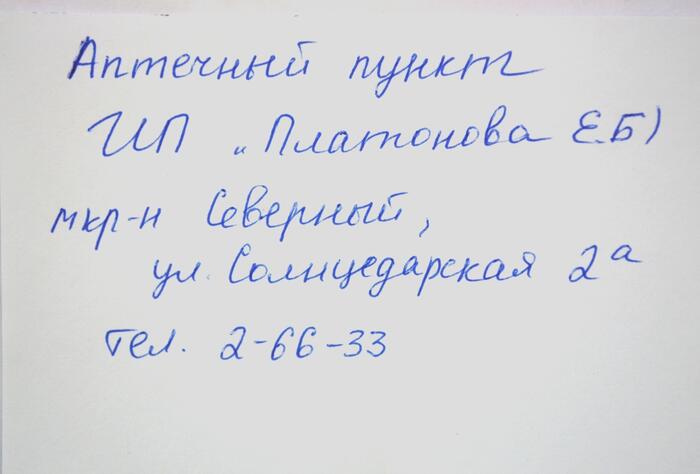 Аптечный пункт
ИП „Платонова Е.Б)
мкр-н Северный,
ул. Солнцедарская 2а
тел. 2-66-33